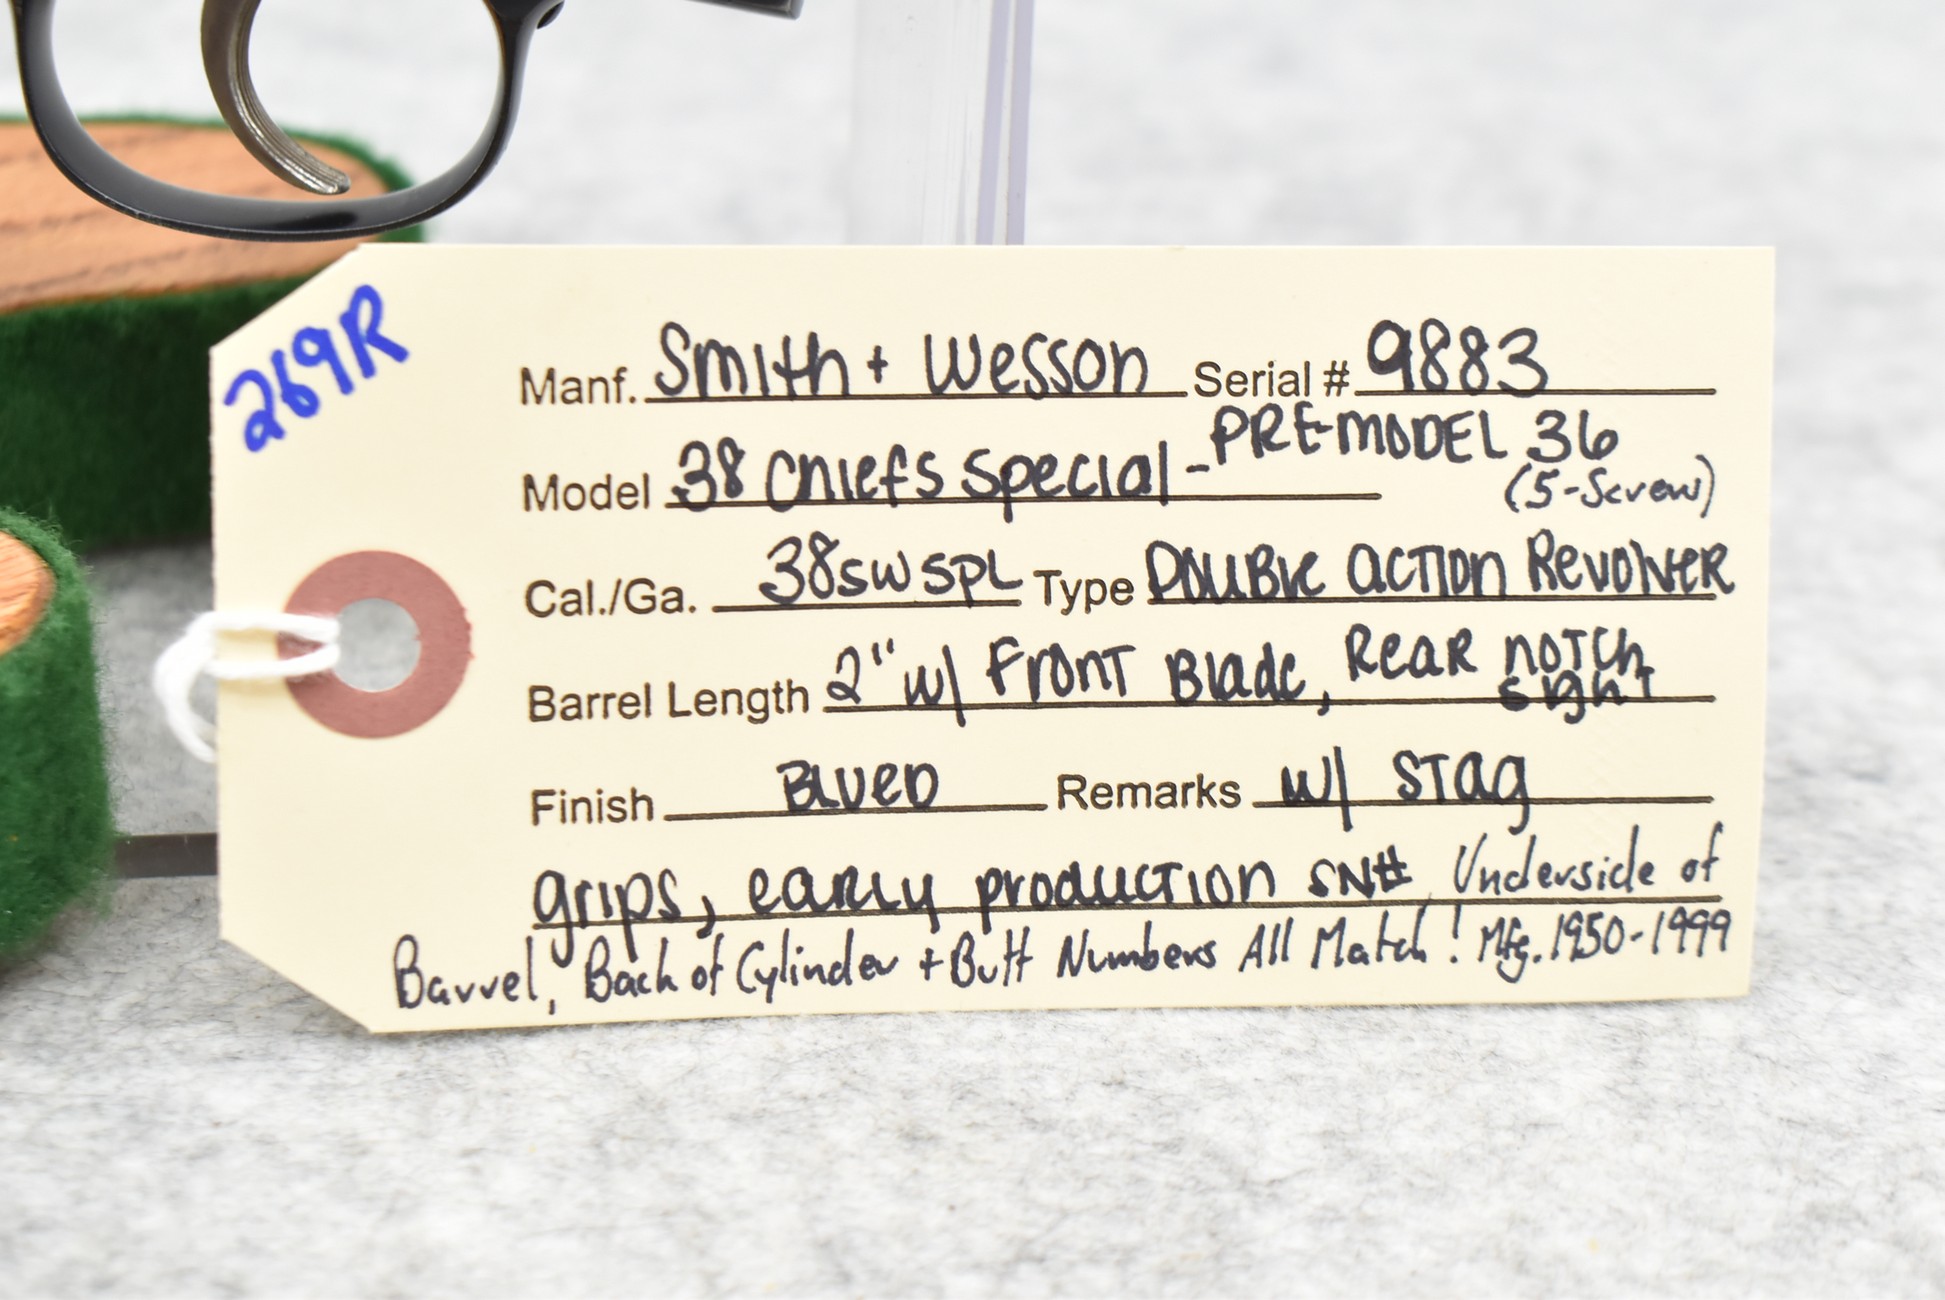 269R
Manf. Smith + Wesson Serial # 9883
Model 38 Chiefs Special - PRE-MODEL 36
(5-Screw)
Cal./Ga. 38 SW SPL Type Double Action Revolver
Barrel Length 2" w/ Front Blade, Rear notch
sight
Finish Blued Remarks w/ Stag
grips, early production SN# Underside of
Barrel, Back of Cylinder + Butt Numbers All Match! Mfg. 1950-1999